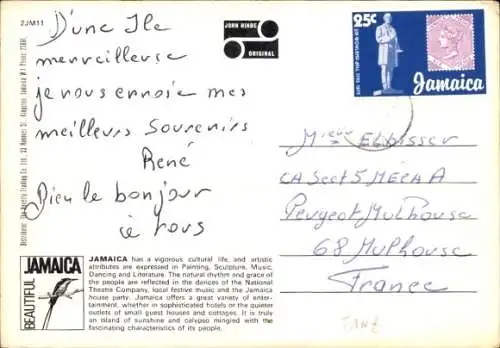 2JM11
D'une Ile
merveilleuse
je vous envoie mes
meilleurs Souvenirs
René
Bien le bonjour
à vous
JOHN HINDE
ORIGINAL
25c
Jamaica
Elbisser
CA Sect 5 MECA A
Peugeot Mulhouse
68 Mulhouse
France
BEAUTIFUL
JAMAICA
JAMAICA has a vigorous cultural life, and artistic
attributes are expressed in Painting, Sculpture, Music,
Dancing and Literature. The natural rhythm and grace of
the people are reflected in the dances of the National
Theatre Company, local festive music and the Jamaica
house party. Jamaica offers a great variety of enter-
tainment, whether in sophisticated hotels or the quieter
outlets of small guest houses and cottages. It is truly
an island of sunshine and calypso mingled with the
fascinating characteristics of its people.